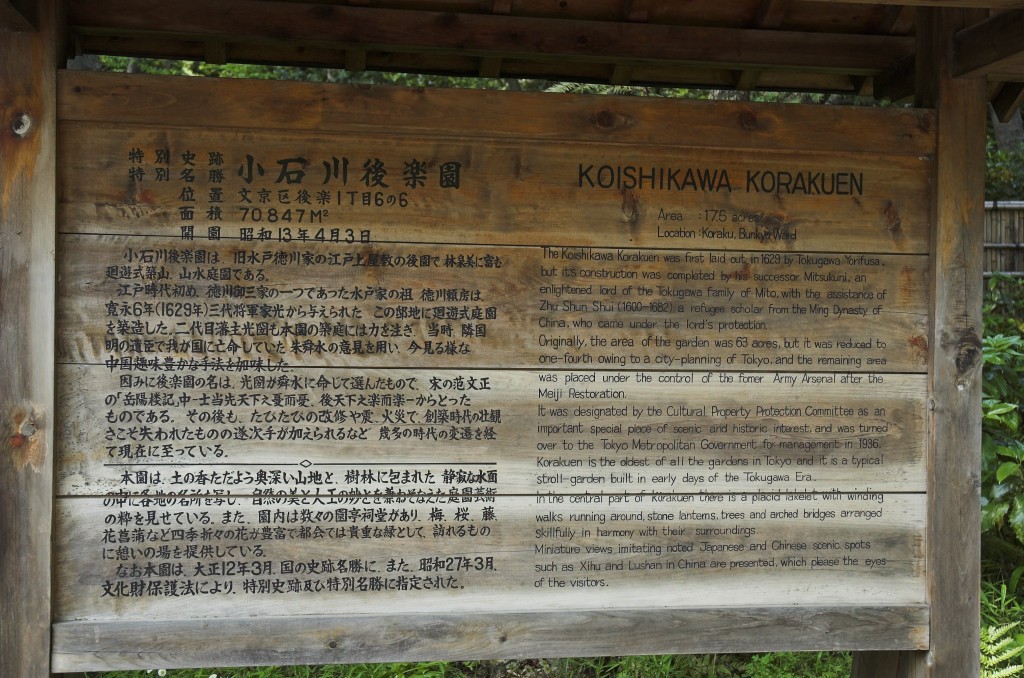 特別史跡
特別名勝
小石川後楽園
位置 文京区後楽1丁目6の6
面積 70.847M²
開園 昭和13年4月3日
小石川後楽園は、旧水戸徳川家の江戸上屋敷の後園で、林泉美に富む
廻遊式築山、山水庭園である。
江戸時代初め、徳川御三家の一つであった水戸家の祖、徳川頼房は、
寛永6年(1629年)三代将軍家光から与えられた この邸地に廻遊式庭園
を築造した。二代目藩主光圀も本園の築庭には力を注ぎ、当時、隣国
明の遺臣で我が国に亡命していた朱舜水の意見を用い、今見る様な
中国趣味豊かな手法を加味した。
因みに後楽園の名は、光圀が舜水に命じて選んだもので、宋の范文正
の「岳陽楼記」中-士当先天下之憂而憂、後天下之楽而楽-からとった
ものである。その後も、たびたびの改修や震、火災で、創築時代の壮観
さこそ失われたものの逐次手が加えられるなど 幾多の時代の変遷を経
て現在に至っている。
本園は、土の香ただよう奥深い山地と、樹林に包まれた 静寂な水面
の中に各地の名所を写し、自然の美と人工の妙とを兼ねそなえた庭園芸術
の粋を見せている。また、園内は数々の園亭祠堂があり、梅、桜、藤、
花菖蒲など四季折々の花が豊富で都会では貴重な緑として、訪れるもの
に憩いの場を提供している。
なお本園は、大正12年3月、国の史跡名勝に、また、昭和27年3月、
文化財保護法により、特別史跡及び特別名勝に指定された。
KOISHIKAWA KORAKUEN
Area : 17.5 acres
Location : Koraku, Bunkyo Ward
The Koishikawa Korakuen was first laid out in 1629 by Tokugawa Yorifusa,
but it's construction was completed by his successor, Mitsukuni, an
enlightened lord of the Tokugawa family of Mito, with the assistance of
Zhu Shun Shui (1600-1682) a refugee scholar from the Ming Dynasty of
China, who came under the lord's protection.
Originally, the area of the garden was 63 acres, but it was reduced to
one-fourth owing to a city-planning of Tokyo, and the remaining area
was placed under the control of the former Army Arsenal after the
Meiji Restoration.
It was designated by the Cultural Property Protection Committee as an
important special place of scenic and historic interest, and was turned
over to the Tokyo Metropolitan Government for management in 1936.
Korakuen is the oldest of all the gardens in Tokyo and it is a typical
stroll-garden built in early days of the Tokugawa Era.
In the central part of Korakuen there is a placid lakelet with winding
walks running around, stone lanterns, trees and arched bridges arranged
skillfully in harmony with their surroundings.
Miniature views imitating noted Japanese and Chinese scenic spots
such as Xihu and Lushan in China are presented, which please the eyes
of the visitors.